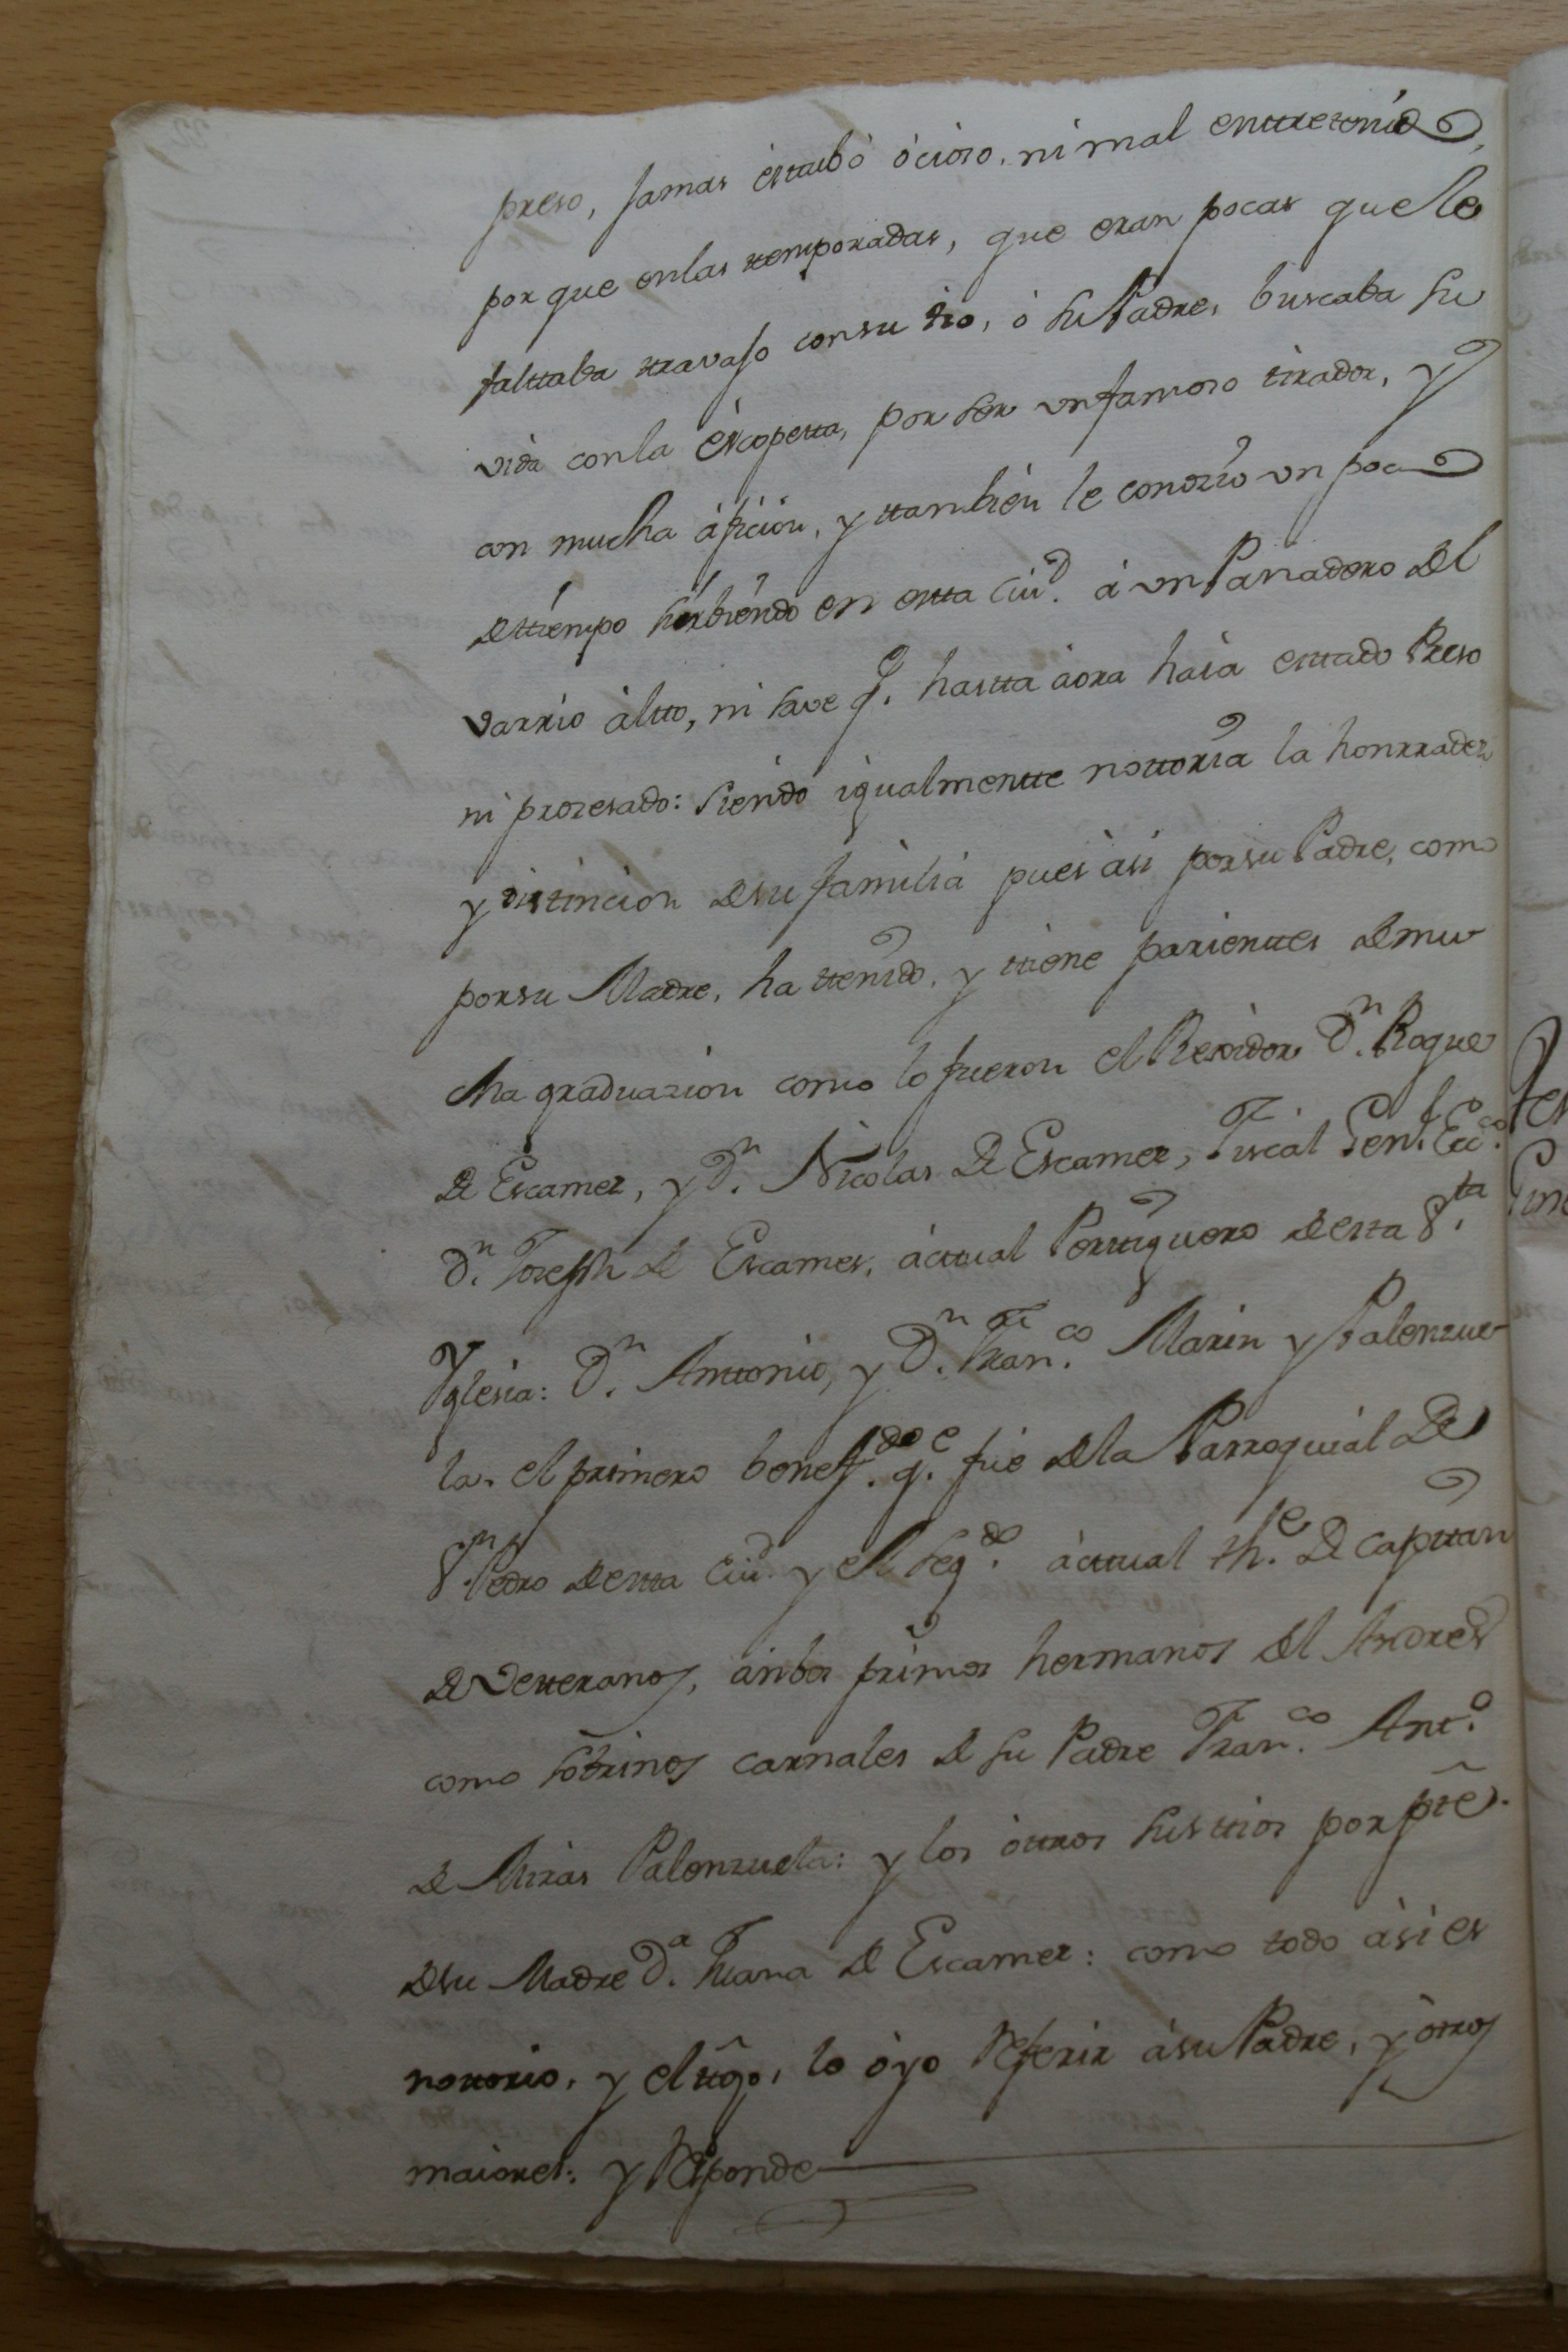 preso, jamas estubo ócioso, ni mal enttretenido,
por que en las ttemporadas, que eran pocas que le
falttaba ttravajo con su tio, ó su Padre, buscaba su
vida con la éscopetta, por ser un famoso tirador, y
con mucha áficion, y ttambien le conozio un poco
de ttiempo sirbiendo en estta Ciud. á un Panadero del
varrio áltto, ni save q.e hastta áora haia esttado Preso
ni prozesado: siendo igualmentte nottoria la honrradez
y distincion de su familia pues ási por su Padre, como
por su Madre, ha ttenido, y ttiene parienttes de mu
cha graduazion como lo fueron el Rexidor D.n Roque
de Escamez, y D.n Nicolas de Escamez, Fiscal Gen.l Ecc.co
D.n Joseph de Escamez, ácttual Perttiguero de esta S.ta
Yglesia: D.n Anttonio, y D.n Fran.co Marin y Palenzue-
la, el primero benef.do q.e fue de la Parroquial de
S.n Pedro de estta Ciud. y el seg.do ácttual th.e de Capittan
de Vetteranos, ambos primos hermanos del Andres
como sobrinos carnales de su Padre Fran.co Ant.o
de Miras Palenzuela: y los óttros sus ttios por p.te
de su Madre D.a Juana de Escamez: como todo ási es
nottorio, y el ttgo, lo óyo Referir á su Padre, y ótros
maiores: y Responde